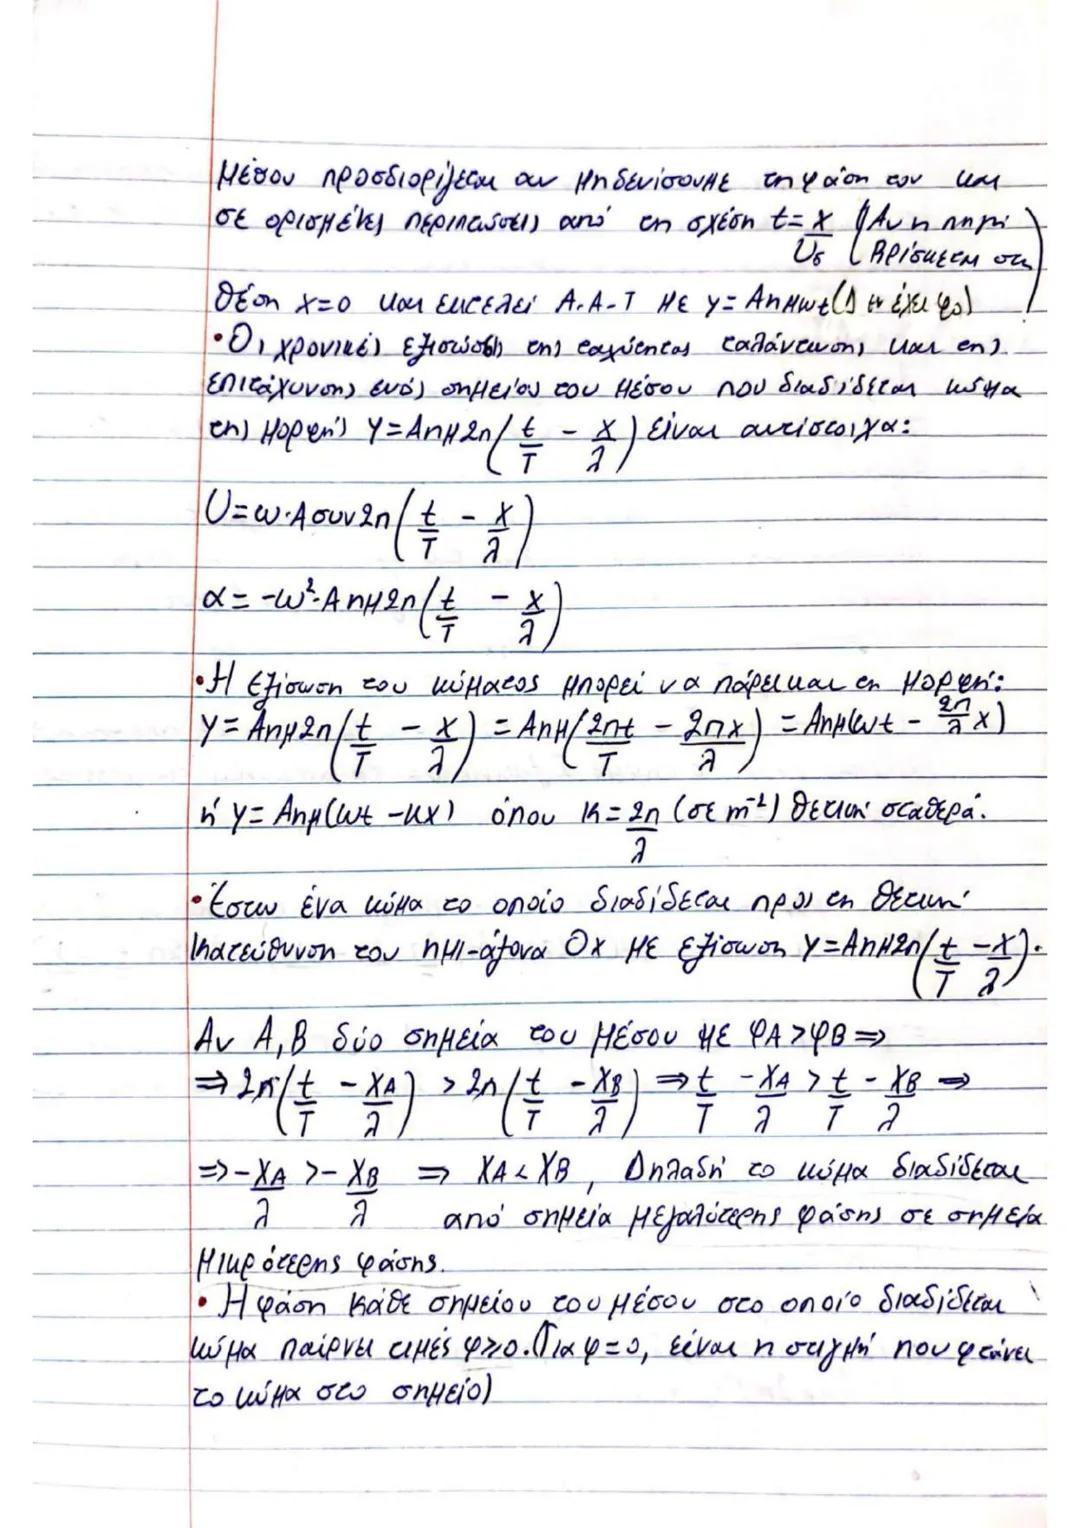 μέσου προσδιορίζεται αν μηδενίσουμε τη φάση του και
σε ορισμένες περιπτώσεις από τη σχέση t = x/υδ (Αν η πηγή
βρίσκεται στη
θέση x=0 και εκτελεί Α.Α.Τ με y = Aημωt (Δεν έχει φ₀)
• Οι χρονικές εξισώσεις της ταχύτητας ταλάντωσης και της
επιτάχυνσης ενός σημείου του μέσου που διαδίδεται κύμα
της μορφής y = Aημ2π(t/T - x/λ) είναι αντίστοιχα:
υ = ω·Aσυν2π(t/T - x/λ)
α = -ω²·Aημ2π(t/T - x/λ)
• Η εξίσωση του κύματος μπορεί να πάρει και τη μορφή:
y = Aημ2π(t/T - x/λ) = Aημ(2πt/T - 2πx/λ) = Aημ(ωt - 2π/λ x)
ή y = Aημ(ωt - κx) όπου κ = 2π/λ (σε m⁻¹) θετική σταθερά.
• Έστω ένα κύμα το οποίο διαδίδεται προς τη θετική
κατεύθυνση του ημι-άξονα Οx με εξίσωση y = Aημ2π(t/T - x/λ).
Αν Α,Β δύο σημεία του μέσου με φA > φB ⇒
⇒ 2π(t/T - xA/λ) > 2π(t/T - xB/λ) ⇒ t/T - xA/λ > t/T - xB/λ ⇒
⇒ -xA/λ > -xB/λ ⇒ xA < xB, Δηλαδή το κύμα διαδίδεται
από σημεία μεγαλύτερης φάσης σε σημεία
μικρότερης φάσης.
• Η φάση κάθε σημείου του μέσου στο οποίο διαδίδεται
κύμα παίρνει τιμές φ≥0. (Για φ=0, είναι η στιγμή που φτάνει
το κύμα στο σημείο)